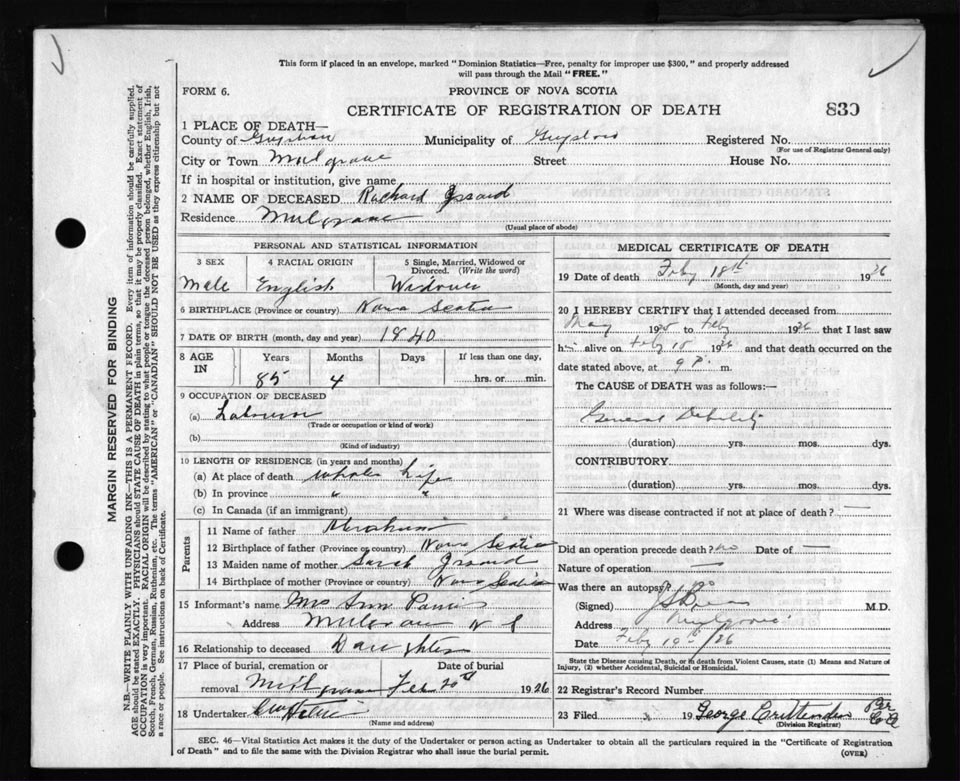 This form if placed in an envelope, marked "Dominion Statistics—Free, penalty for improper use $300," and properly addressed
will pass through the Mail "FREE."
FORM 6.
PROVINCE OF NOVA SCOTIA
CERTIFICATE OF REGISTRATION OF DEATH
830
1 PLACE OF DEATH—
County of Municipality of Registered No.
(For use of Registrar General only)
City or Town Mulgrave Street House No.
If in hospital or institution, give name
2 NAME OF DECEASED Richard
Residence Mulgrave
(Usual place of abode)
PERSONAL AND STATISTICAL INFORMATION
3 SEX 4 RACIAL ORIGIN 5 Single, Married, Widowed or Divorced. (Write the word)
Male English Widower
6 BIRTHPLACE (Province or country) Nova Scotia
7 DATE OF BIRTH (month, day and year) 1840
8 AGE IN Years Months Days If less than one day,
85 4 hrs. or min.
9 OCCUPATION OF DECEASED
(a)
(Trade or occupation or kind of work)
(b)
(Kind of industry)
10 LENGTH OF RESIDENCE (in years and months)
(a) At place of death whole Life
(b) In province " "
(c) In Canada (if an immigrant)
Parents
11 Name of father
12 Birthplace of father (Province or country) Nova Scotia
13 Maiden name of mother Sarah
14 Birthplace of mother (Province or country) Nova Scotia
15 Informant's name Mrs Ann
Address Mulgrave N S
16 Relationship to deceased Daughter
17 Place of burial, cremation or Date of burial
removal Mulgrave Feb 20th 1926
18 Undertaker
(Name and address)
MEDICAL CERTIFICATE OF DEATH
19 Date of death Feby 18th 1926
(Month, day and year)
20 I HEREBY CERTIFY that I attended deceased from
May 1925 to Feby 1926 that I last saw
him alive on Feby 1926 and that death occurred on the
date stated above, at 9 P. m.
The CAUSE of DEATH was as follows:—
General Debility
(duration) yrs. mos. dys.
CONTRIBUTORY
(duration) yrs. mos. dys.
21 Where was disease contracted if not at place of death? —
Did an operation precede death? no Date of —
Nature of operation —
Was there an autopsy? No
(Signed) M.D.
Address Mulgrave
Date Feby 19th/26
State the Disease causing Death, or in death from Violent Causes, state (1) Means and Nature of
Injury, (2) whether Accidental, Suicidal or Homicidal.
22 Registrar's Record Number
23 Filed 19 George Crittenden Per
(Division Registrar)
SEC. 46—Vital Statistics Act makes it the duty of the Undertaker or person acting as Undertaker to obtain all the particulars required in the "Certificate of Registration
of Death" and to file the same with the Division Registrar who shall issue the burial permit.
(OVER)
MARGIN RESERVED FOR BINDING
N.B.—WRITE PLAINLY WITH UNFADING INK—THIS IS A PERMANENT RECORD. Every item of information should be carefully supplied.
AGE should be stated EXACTLY. PHYSICIANS should STATE CAUSE OF DEATH in plain terms, so that it may be properly classified. Exact statement of
OCCUPATION is very important. RACIAL ORIGIN will be described by stating to what people or tongue the deceased person belonged, whether English, Irish,
Scotch, French, German, Russian, Ruthenian, etc. The terms "AMERICAN" or "CANADIAN" SHOULD NOT BE USED as they express citizenship but not
a race or people. See instructions on back of Certificate.